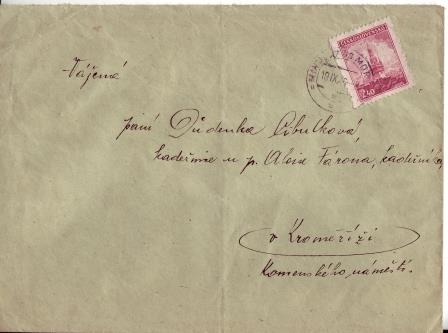 ČESKOSLOVENSKO
2.40
Vážená
paní Zdenka Cibulková,
kadeřnice u p. Aloise Fárona, kadeřníka,
v Kroměříži
Komenského náměstí.